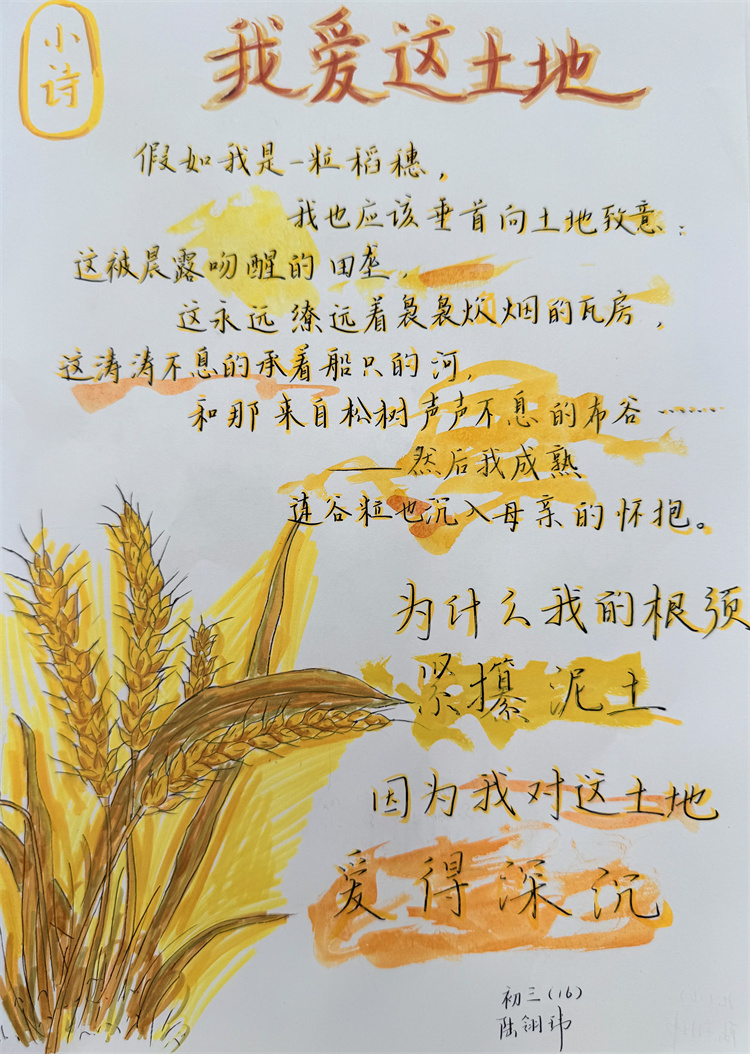 小诗
我爱这土地
假如我是一粒稻穗，
我也应该垂首向土地致意：
这被晨露吻醒的田垄，
这永远缭远着袅袅炊烟的瓦房，
这涛涛不息的承着船只的河，
和那来自松树声声不息的布谷……
——然后我成熟
连谷粒也沉入母亲的怀抱。
为什么我的根须
紧攥泥土
因为我对这土地
爱得深沉
初三(16)
陆钥玮